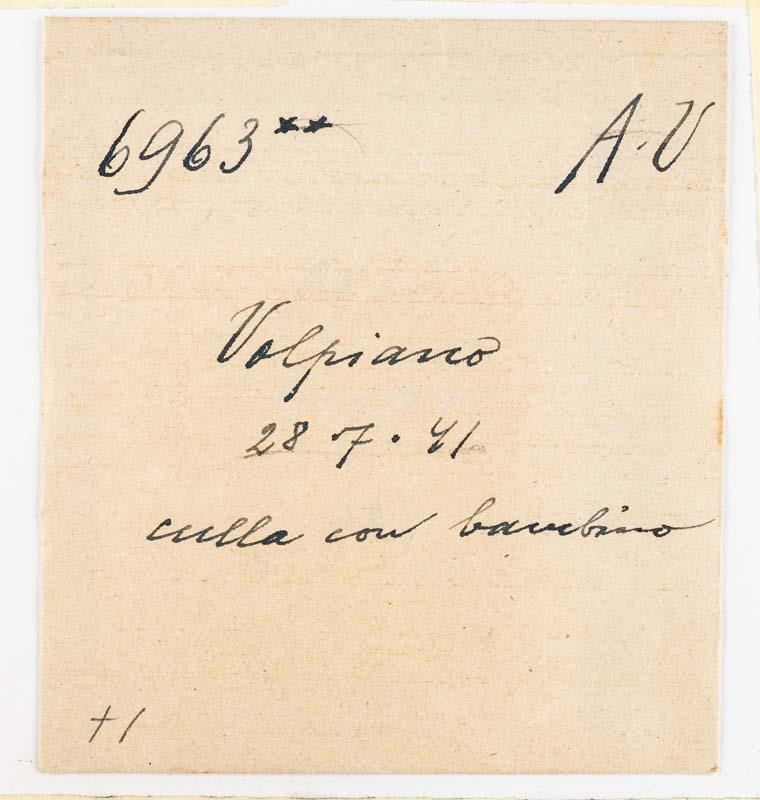 6963** A.V
Volpiano
28.7.41
culla con bambino
+1